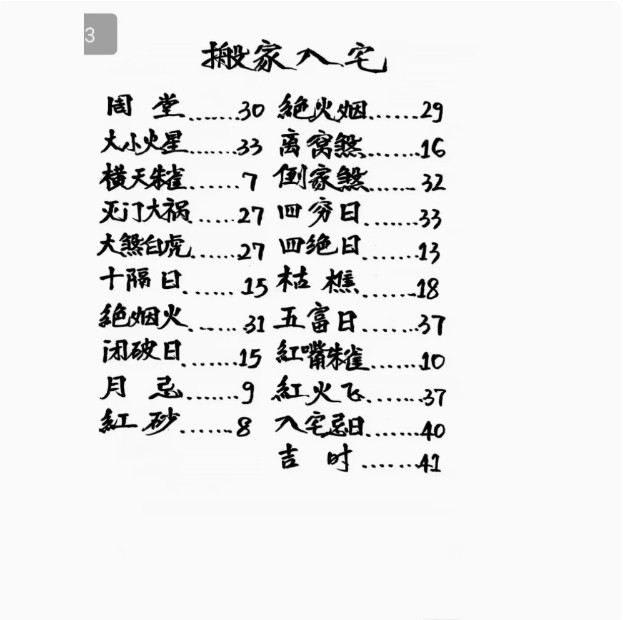 3
搬家入宅
周堂.......30 絕火烟......29
大小火星......33 离窝煞......16
横天朱雀......7 倒家煞......32
灭门大祸.....27 四穷日......33
大煞白虎......27 四绝日......13
十隔日......15 枯樵......18
絕烟火......31 五富日......37
闭破日.......15 紅嘴朱雀......10
月忌.......9 紅火飞......37
紅砂......8 入宅忌日......40
吉时.......41